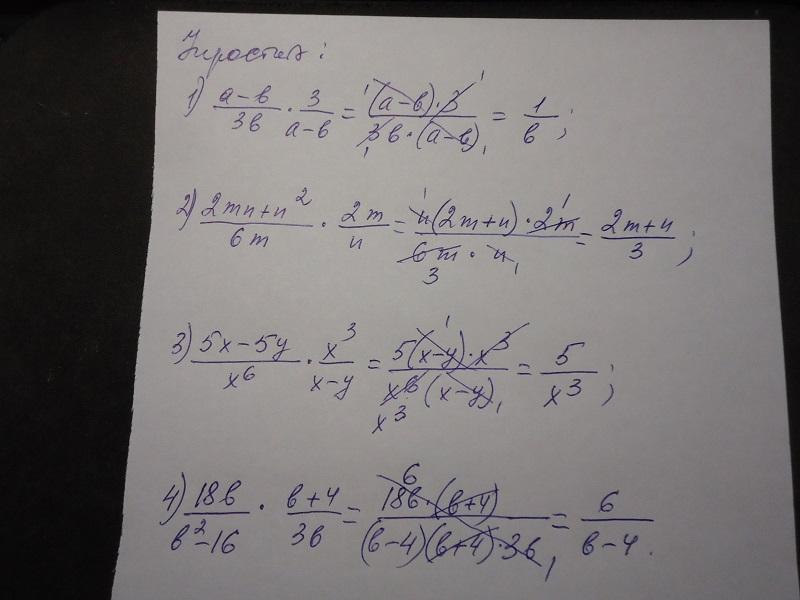 Упростить:
1) (a-в)/(3в) · 3/(a-в) = ((a-в)·3)/(3в·(a-в)) = 1/в;
2) (2mn+n²)/(6m) · 2m/n = (n(2m+n)·2m)/(6m·n) = (2m+n)/3;
3) (5x-5y)/x⁶ · x³/(x-y) = (5(x-y)·x³)/(x⁶(x-y)) = 5/x³;
4) 18в/(в²-16) · (в+4)/(3в) = (18в·(в+4))/((в-4)(в+4)·3в) = 6/(в-4).